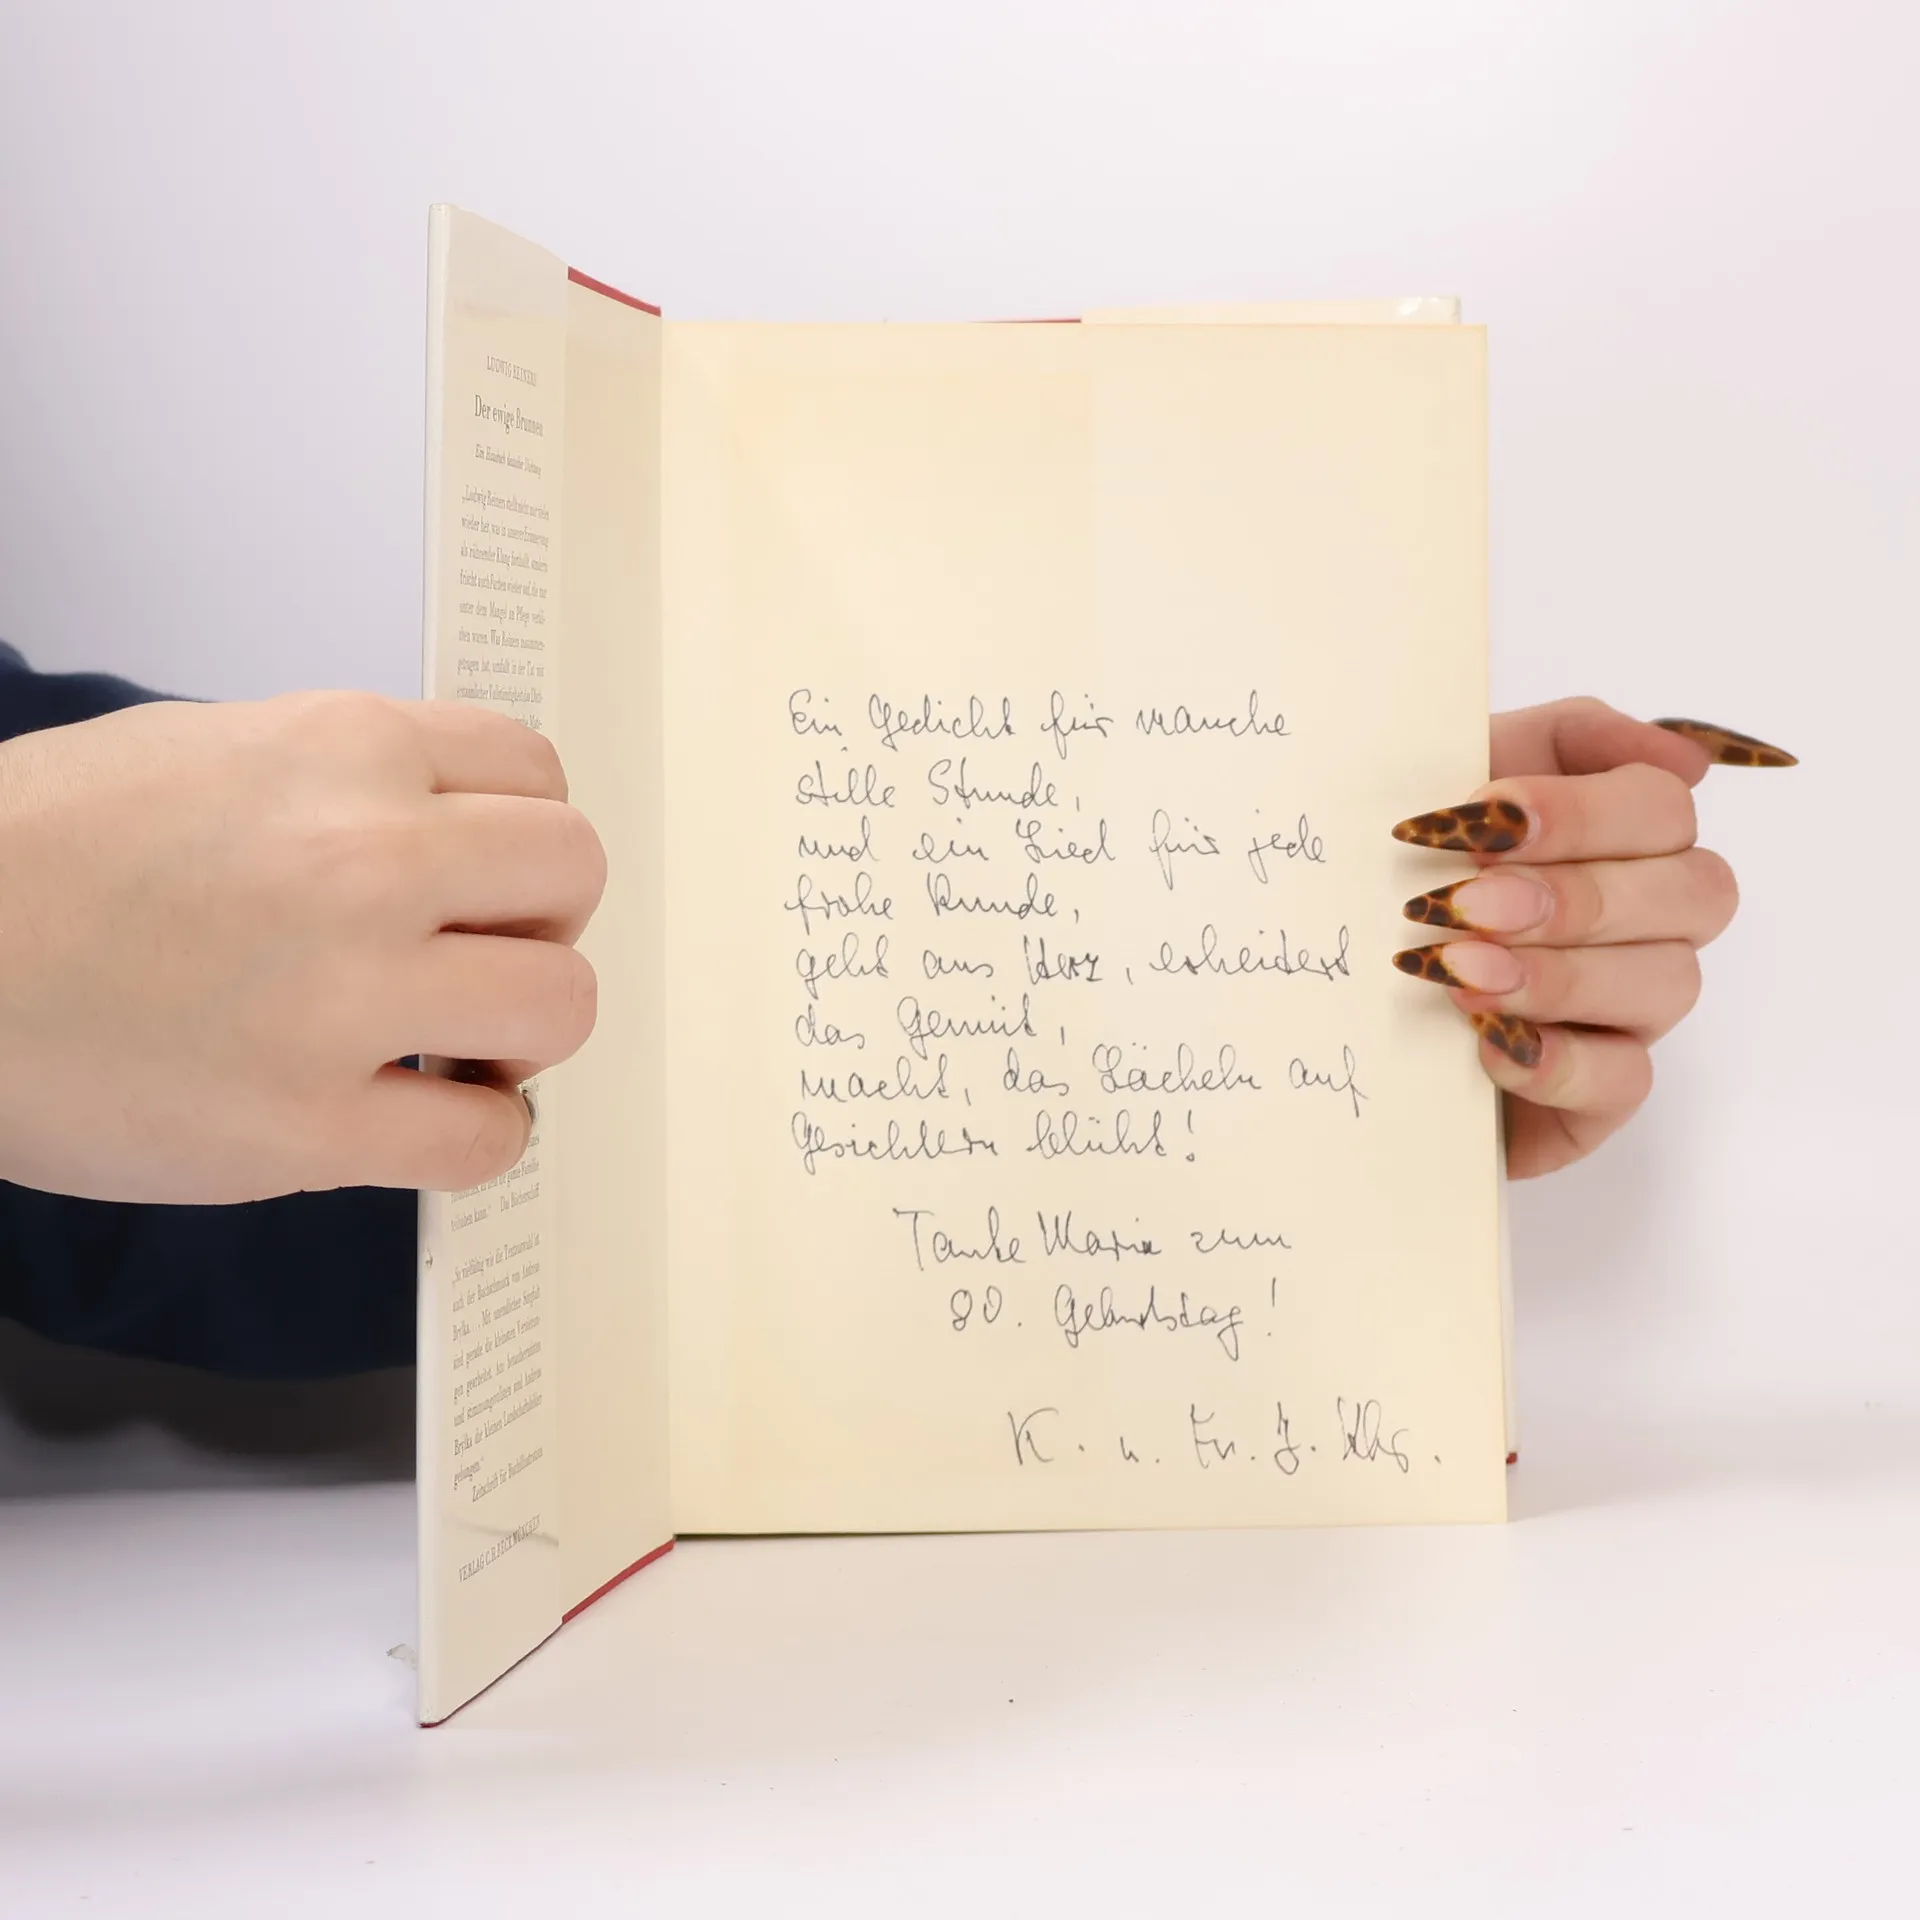 LUDWIG REINERS
Der ewige Brunnen
Ein Hausbuch deutscher Dichtung
„Ludwig Reiners stellt nicht nur vieles
wieder her, was in unserer Erinnerung
als rührender Klang forthallt, sondern
frischt auch Farben wieder auf, die nur
unter dem Mangel an Pflege verbli-
chen waren. Was Reiners zusammen-
getragen hat, umfaßt in der Tat mit
die ganze Familie
kann." Das Bücherschiff
„So vielfältig wie die Textauswahl ist
auch der Buchschmuck von Andreas
Brylka. . . Mit unendlicher Sorgfalt
sind gerade die kleinsten
gen gearbeitet. Am
und stimmungsvollsten sind Andreas
Brylka die kleinen Landschaftsbilder
gelungen."
Zeitschrift für Buchillustration
VERLAG C.H.BECK MÜNCHEN
Ein Gedicht für manche
stille Stunde,
und ein Lied für jede
frohe Runde,
geht ans Herz, erheitert
das Gemüt,
macht, das Lächeln auf
Gesichtern blüht!
Tante Maria zum
80. Geburtstag!
K. u.